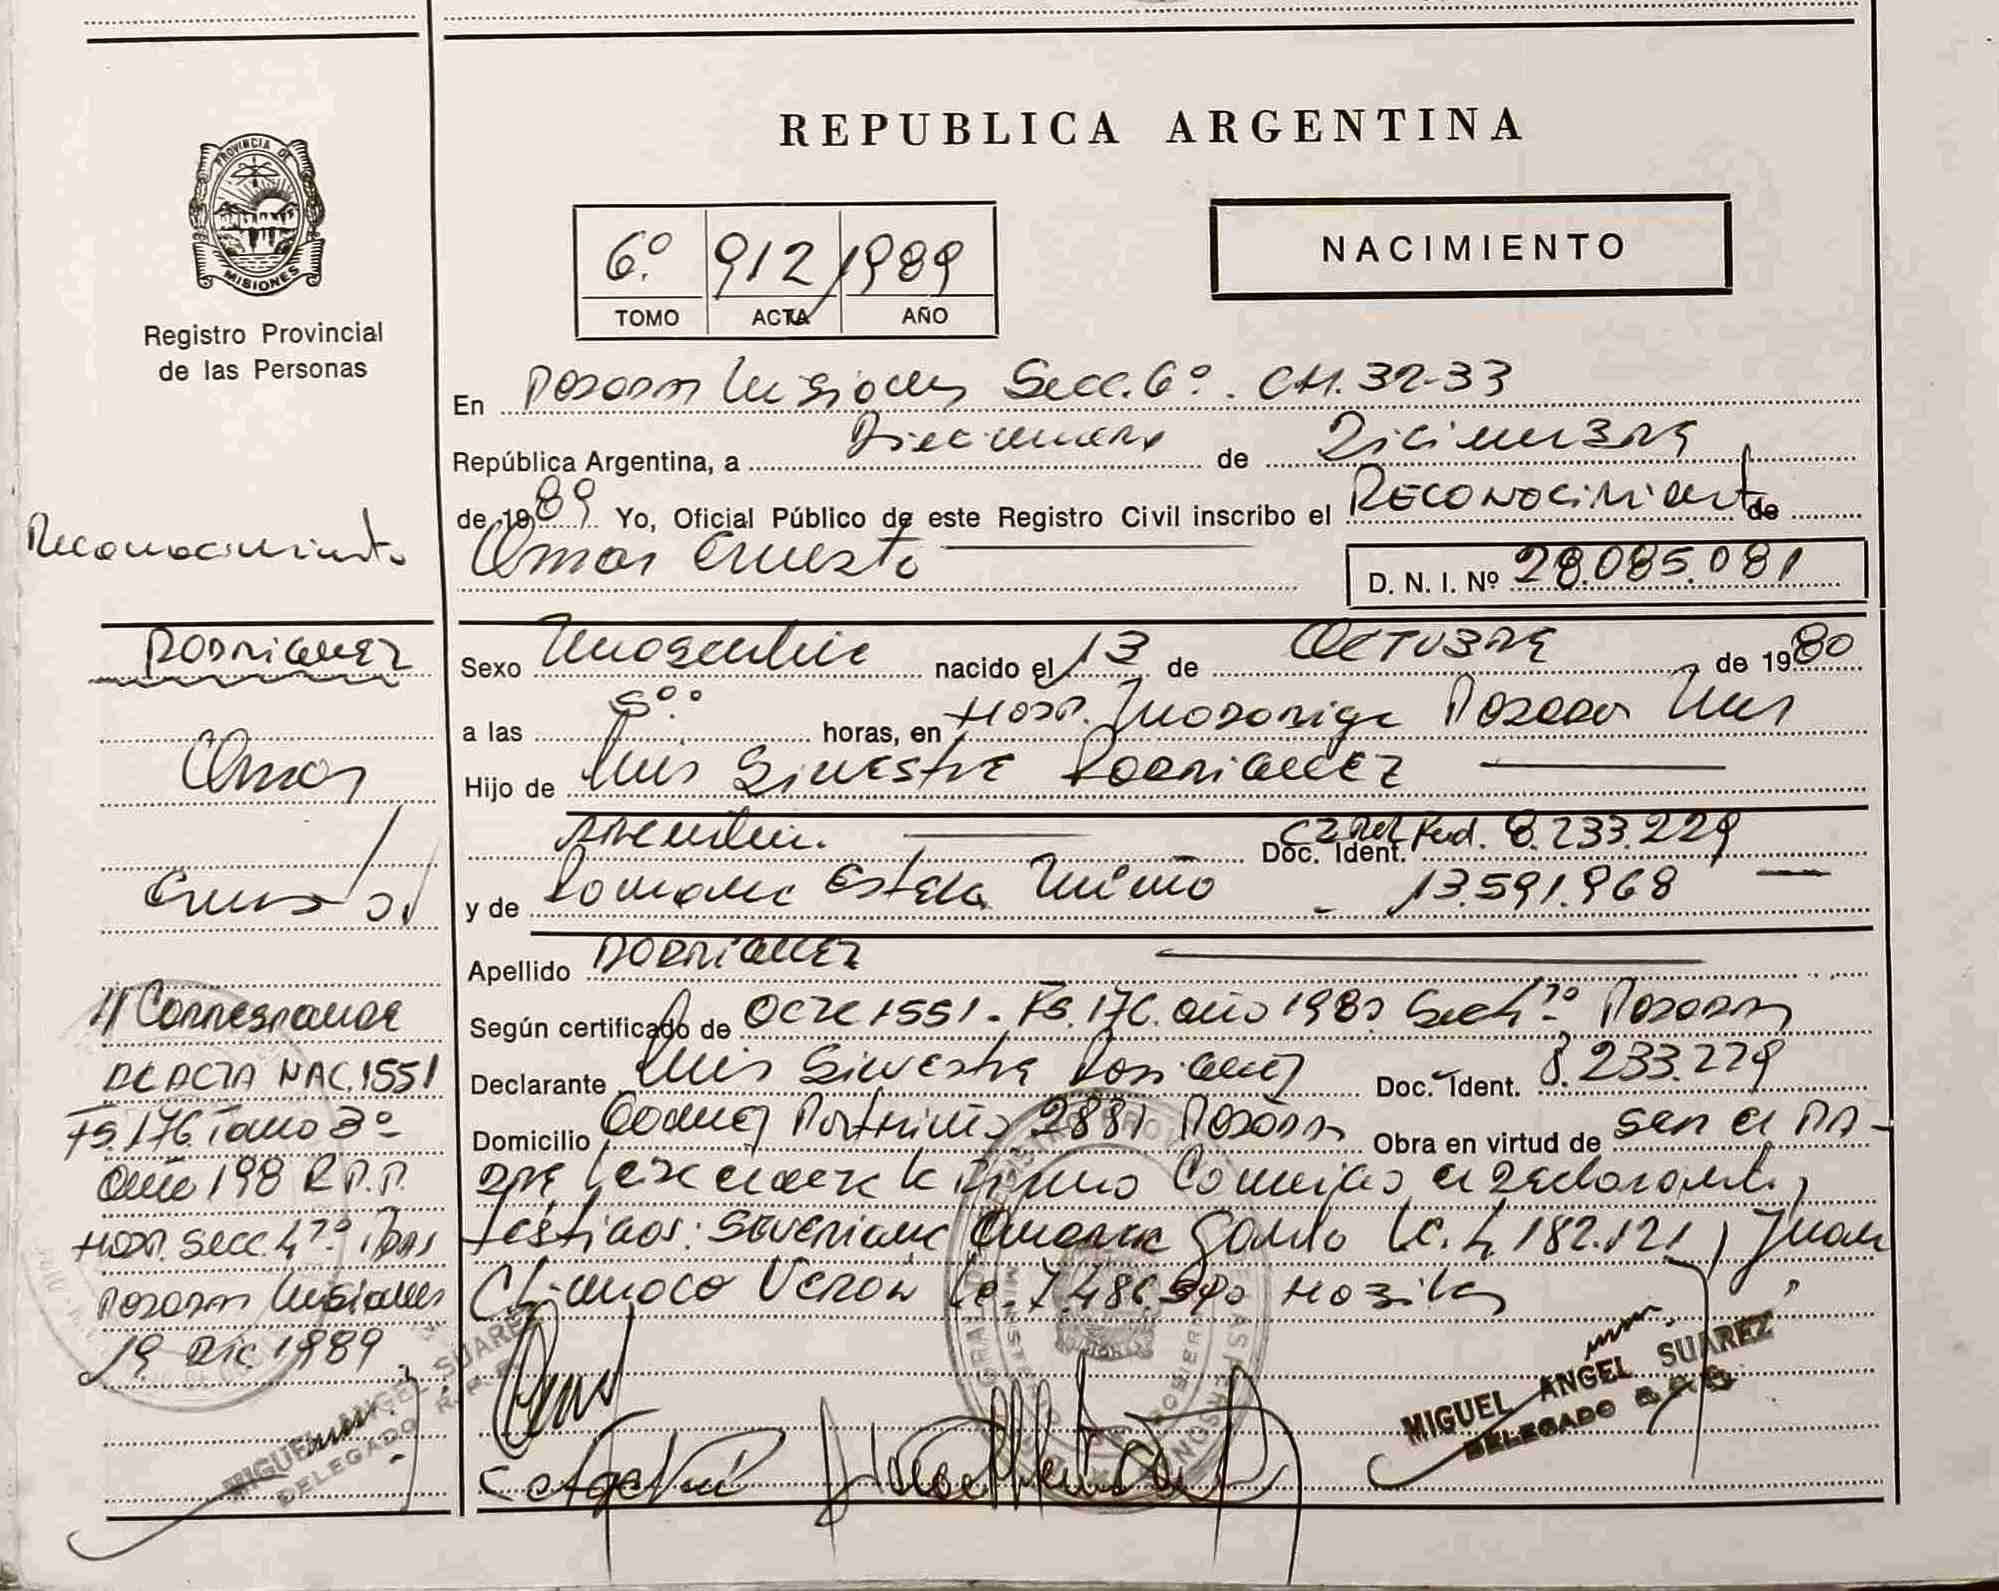 REPUBLICA ARGENTINA
PROVINCIA DE
MISIONES
Registro Provincial
de las Personas
6º 912 1989
TOMO ACTA AÑO
NACIMIENTO
En Posadas Misiones Secc. 6º. CH. 32-33
República Argentina, a de Diciembre
de 1989 Yo, Oficial Público de este Registro Civil inscribo el Reconocimiento de
Omar Ernesto
D. N. I. Nº 28.085.081
Sexo Masculino nacido el 13 de Octubre de 1980
a las horas, en Hosp. Madariaga Posadas Mnes
Hijo de Luis Silvestre Rodriguez
Argentino. Doc. Ident. 8.233.229
y de Ramona Estela Miño - 13.591.968
Apellido Rodriguez
Según certificado de Acta 1551 - Fs. 176. año 198 Secc 4ª Posadas
Declarante Luis Silvestre Rodriguez Doc. Ident. 8.233.229
Domicilio 2881 Posadas Obra en virtud de ser el pa-
dre declarante,
testigos: 4.182.121, Juan
Veron
MIGUEL ANGEL SUAREZ
DELEGADO
Reconocimiento
Rodriguez
Omar
Ernesto
// Corresponde
al Acta Nac. 1551
Fs. 176 Tomo 3º
año 198 R.P.P.
Secc. 4ª
Posadas Misiones
19 Dic 1989
MIGUEL ANGEL SUAREZ
DELEGADO R. P. P.